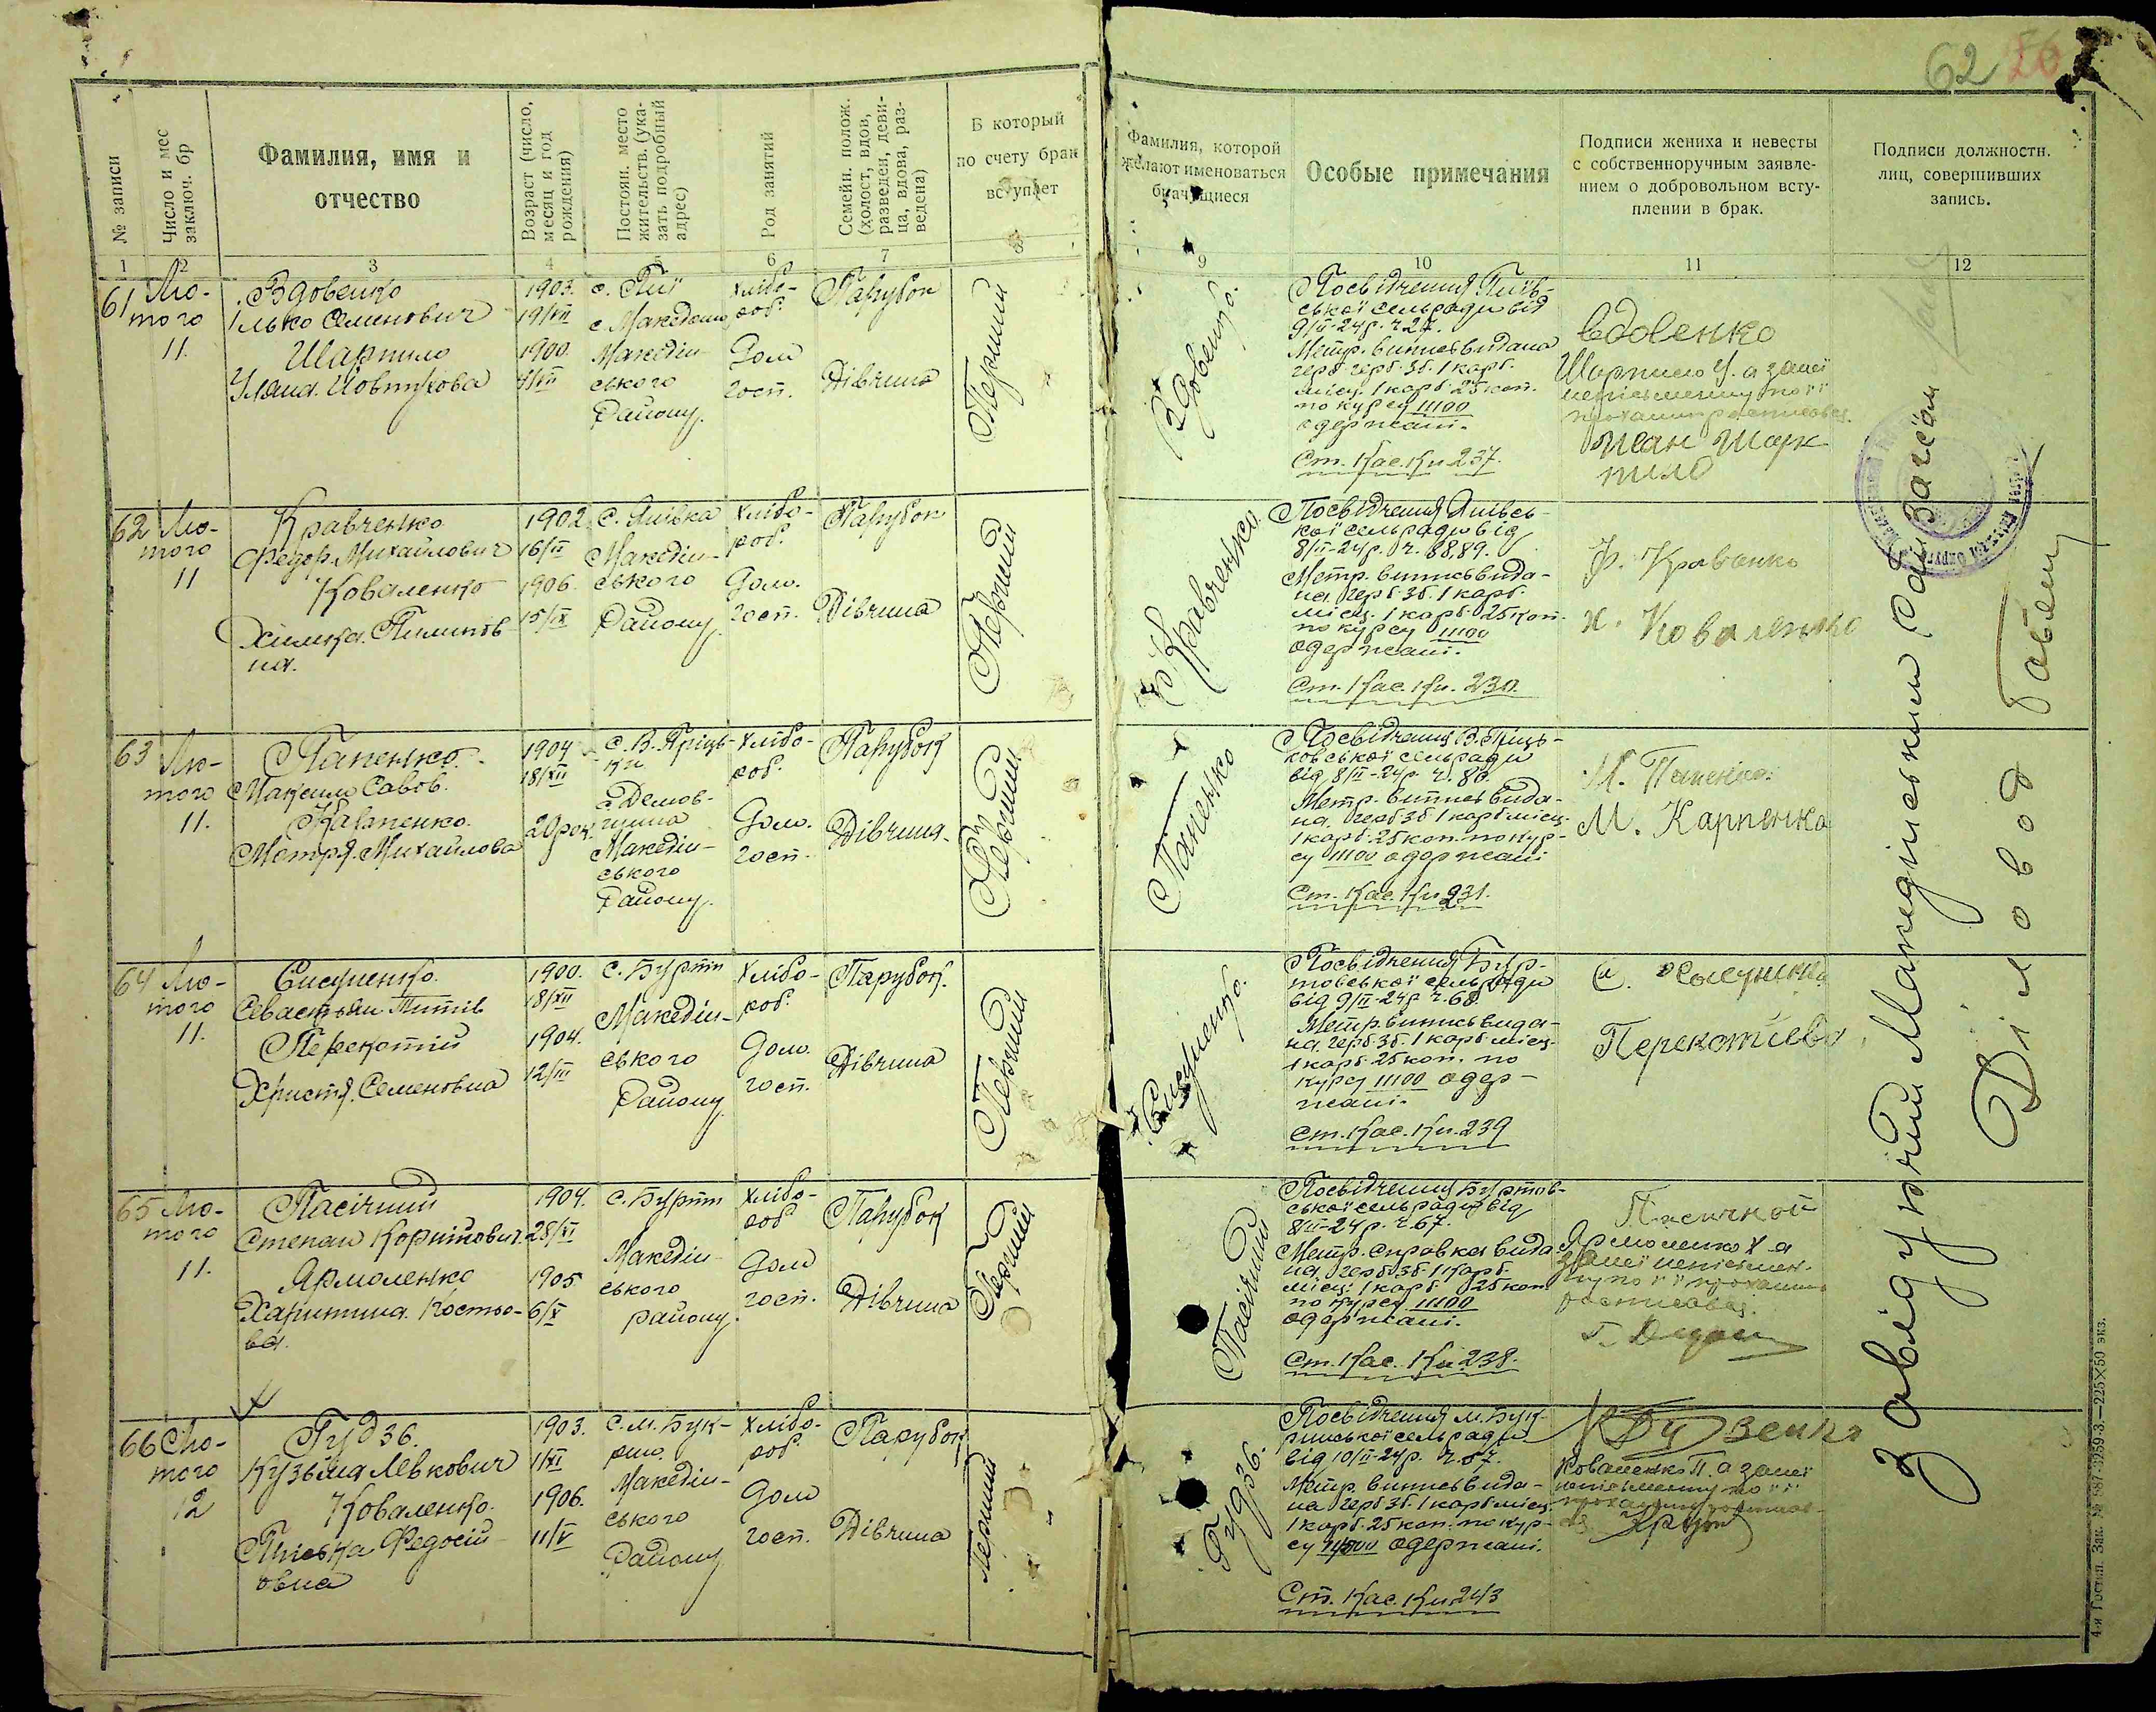 62 26
№ записи
Число и мес
заключ. бр
Фамилия, имя и
отчество
Возраст (число,
месяц и год
рождения)
Постоян. место
жительств. (ука-
зать подробный
адрес)
Род занятий
Семейн. полож.
(холост, вдов,
разведен, деви-
ца, вдова, раз-
ведена)
В который
по счету брак
вступает
Фамилия, которой
желают именоваться
брачущиеся
Особые примечания
Подписи жениха и невесты
с собственноручным заявле-
нием о добровольном всту-
плении в брак.
Подписи должностн.
лиц, совершивших
запись.
1 2 3 4 5 6 7 8 9 10 11 12
61
Лю-
того
11.
Вдовенко
Ілько Семенович
Шарпило
Уляна
1903.
19/VII
1900
с. Пії
Македін-
ського
Району.
хлібо-
роб.
Дом
госп.
Парубок
Дівчина
Перший
Вдовенко.
Посвідчення Пиів-
ської сельради від
9/II-24р. ч 27.
Метр. випись видана
герб. зб. 1 карб.
місц. 1 карб. 25 коп.
по курсу 11100
одержані.
Ст. Кас. Кн 237.
Вдовенко
Шарпило У. а за неї
неписьменну по її
62
Лю-
того
11
Кравченко
Федор Михайлович
Коваленко
Химка Пилипів-
на.
1902
16/II
1906.
15/IX
С. Янівка
Македін-
ського
Району.
хлібо-
роб.
Дом.
госп.
Парубок
Дівчина
Перший
Кравченко
Посвідчення Янівсь-
кої сельради від
8/II-24р. ч. 8889.
Метр. випись вида-
на герб. зб. 1 карб.
місц. 1 карб. 25 коп.
по курсу 11100
одержані.
Ст. Кас. Кн. 230.
Ф. Кравенко
Х. Коваленко
63
Лю-
того
11.
Папенко
Максим Савов.
Карпенко.
Мотря Михайлова
1904
18/XII
20 рок.
Македін-
ського
Району.
хлібо-
роб.
Дом.
госп.
Парубок
Дівчина.
Перший
Папенко
від 8/II-24р. ч. 80.
Метр. випись вида-
на герб зб 1 карб місц.
1 карб. 25 коп. по кур-
су 11100 одержані
Ст. Кас. Кн 231.
М. Папенко.
М. Карпенко
64
Лю-
того
11.
Сисуненко.
Севастьян Титів
Перекотій
Христя Семеновна
1900.
18/XII
1904.
12/III
с. Бурти
Македін-
ського
Району
хлібо-
роб.
Дом.
госп.
Парубок.
Дівчина
Перший
Сисуненко.
Посвідчення Бур-
товської сельради
від 9/II-24р ч. 68.
Метр. випись вида-
на герб зб. 1 карб місц.
1 карб. 25 коп. по
курсу 11100 одер-
жані.
Ст. Кас. Кн. 239
65
Лю-
того
11.
Пасічний
Степан Корнійович.
Ярмоленко
Харитина Костьо-
ва.
1904.
28/XI
1905
6/X
с. Бурти
Македін-
ського
району.
хлібо-
роб.
Дом
госп.
Парубок
Дівчина
Перший
Пасічний
Посвідчення Буртов-
ської сельради від
8/II-24р. ч. 67.
Метр. справка вида
на герб зб. 1 карб.
місц. 1 карб. 25 коп
по курсу 11100
одержані.
Ст. Кас. Кн 238.
Ярмоленко Х а
за неї неписьмен-
ну по її прохання
66
Лю-
того
12
Гудзь.
Кузьма Левкович
Коваленко.
Пріська Федосій-
овна
1903.
1/XI
1906.
11/V
С. М. Бук-
рин.
Македін-
ського
Району
хлібо-
роб.
Дом
госп.
Парубок
Дівчина
Перший
Гудзь.
Посвідчення М. Бук-
ринської сельради
від 10/II-24р. ч. 67.
Метр. випись вида-
на герб зб. 1 карб місц
1 карб. 25 коп. по кур-
су 11400 одержані.
Ст. Кас. Кн 243
Коваленко П. а за неї
неписьменну по її
Завідуючий Македінським Рай Загсом
Діловод